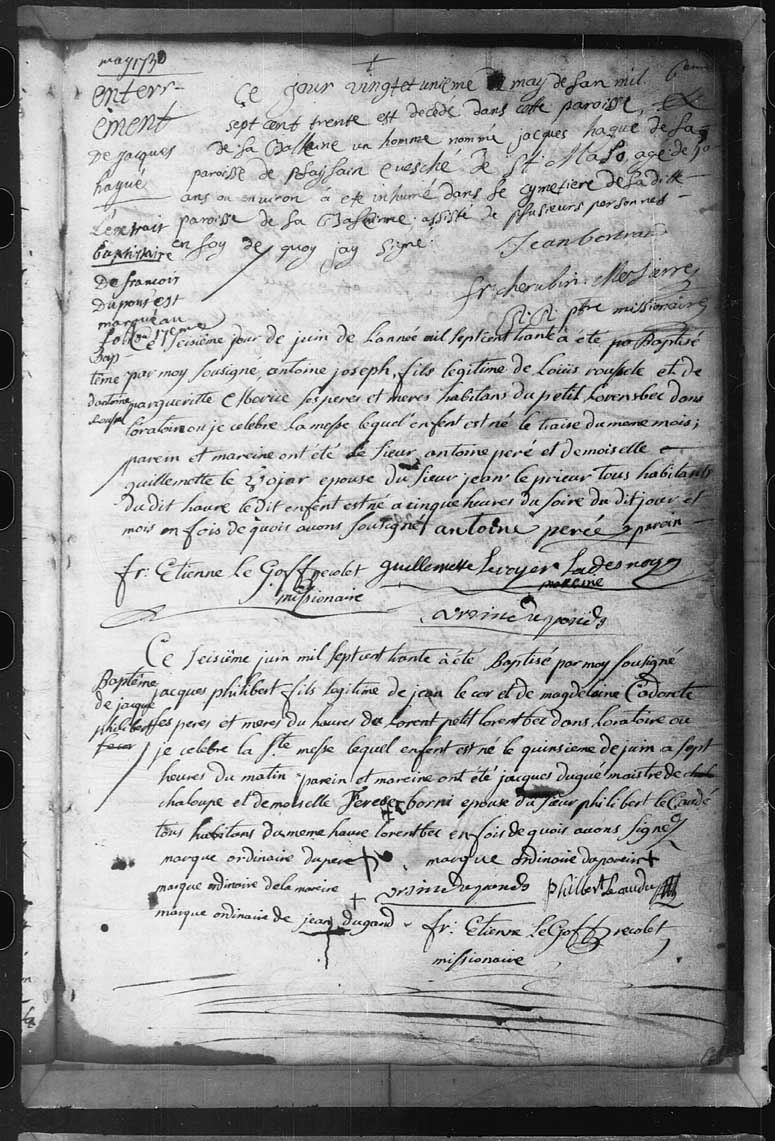 may 1730
enterr-
ement
De jacques
haqué
L'extrait
baptistaire
De francois
Duponsest
marqué au
folio 17eme
Ce jour vingt et unieme may de lan mil
sept cent trente est decedé dans cette paroisse
de la Balleine un homme nommé jacques haqué de la
paroisse de plaissain Evesché de St. Malo, agé de
ans ou environ á eté inhumé dans le cymetiere de la ditte
paroisse de la Balleinne, assisté de plusieurs personnes
en foy de quoy jay signé.
Jean bertrand
fr. cherubin
ptre missionaire
Bap-
tême
d'antoine
roupel
Ce seisiême jour de juin de L'année mil sept cent trante à été par Baptisé
par moy sousigné antoine joseph, fils legitime de Loüis roupele et de
margueritte ses peres et meres habitans du petit Lorensbec dans
loratoire ou je celebre la messe lequel enfent est né le traise du mene mois;
parein et mareine ont été le sieur antoine peré et demoiselle
guillemette le epouse du sieur jean le prieur tous habitants
du dit havre le dit enfent est né a cinque heures du soire du dit jour et
mois en fois de quois avons sousigné antoine perée parain
fr: Etienne Le Goff recolet guillemette Levoyer Ladesnoye
missionaire mareine
Baptême
de jacque
philibert
lecor
Ce seisiême juin mil sept cent trante à été Baptisé par moy sousigné
jacques philibert fils legitime de jean le cor et de magdelaine Cadorete
ses peres et meres du havres du Lorent petit lorentbec dans loratoire ou
je celebre la Ste messe lequel enfent est né le quinsieme de juin a sept
heures du matin parein et mareine ont été jacques dugué maistre de
chaloupe et demoiselle Terese borni epouse du sieur philibert le Caudé
tous habitans du meme havre lorentbec en fois de quois avons signé
marque ordinaire du pere + marque ordinaire du parein +
marque ordinoire de la mareine + philbert Le caudu
marque ordinaire de jean dugand fr: Etienne Le Goff recolet
missionaire